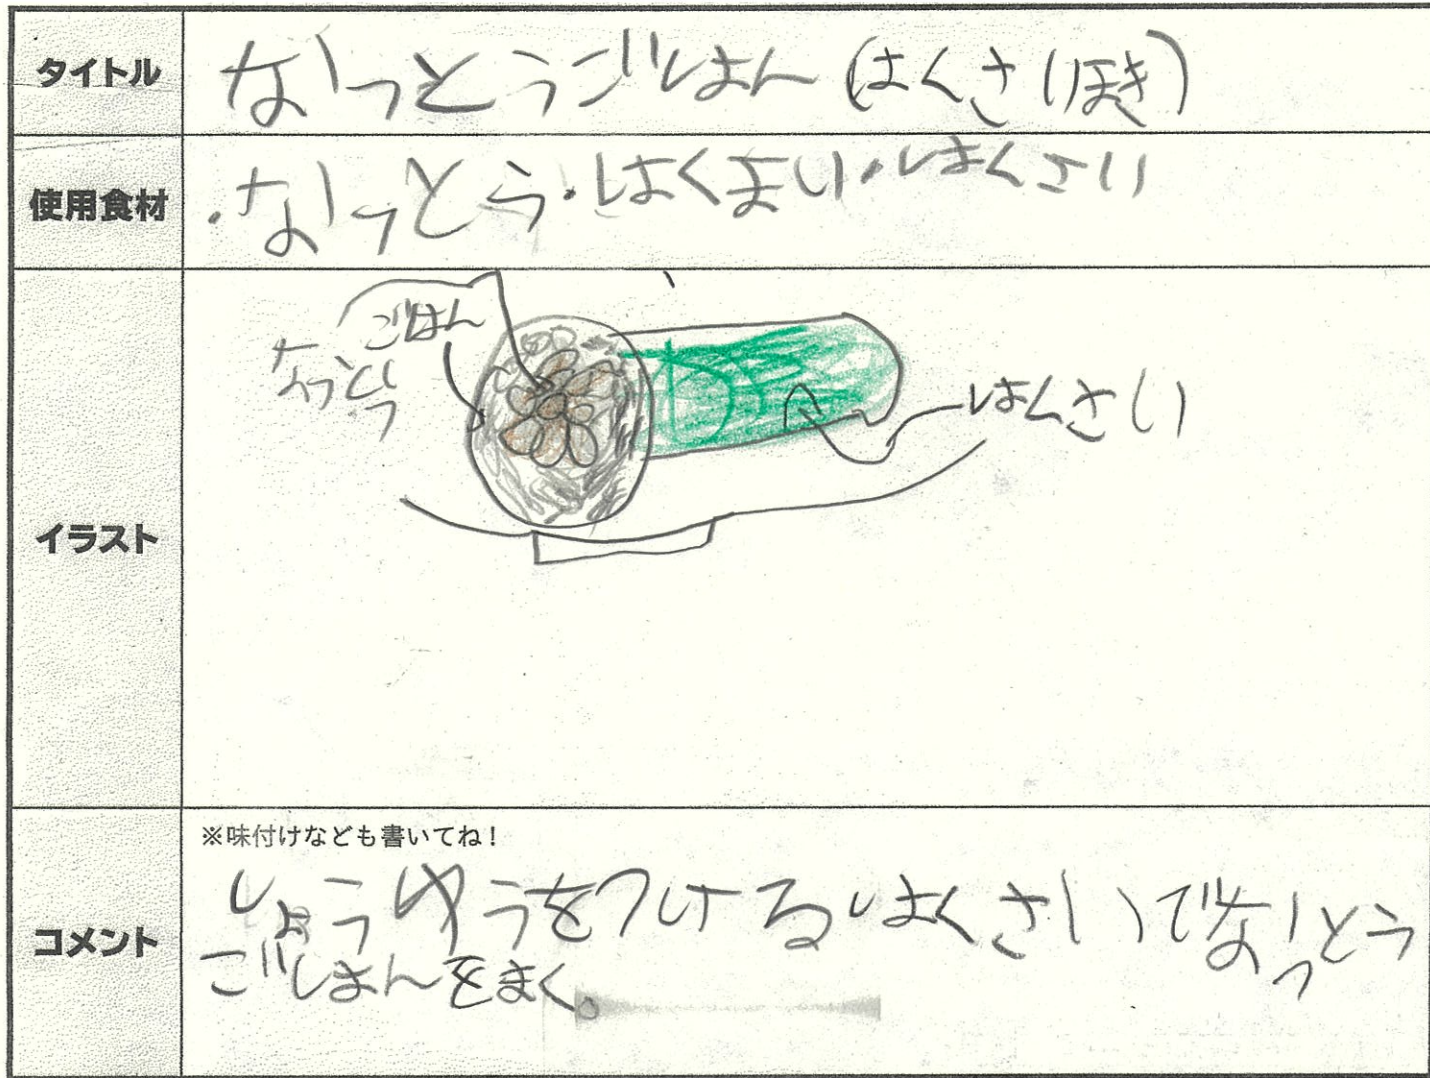 タイトル
なっとうごはん(はくさいまき)
使用食材
・なっとう・はくまい・はくさい
イラスト
ごはん
なっとう
はくさい
コメント
※味付けなども書いてね!
しょうゆうをつけるはくさいでなっとう
ごはんをまく。